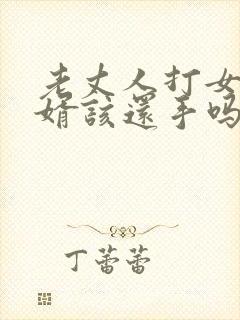 老丈人打女
婿該還手吗
丁蕾蕾